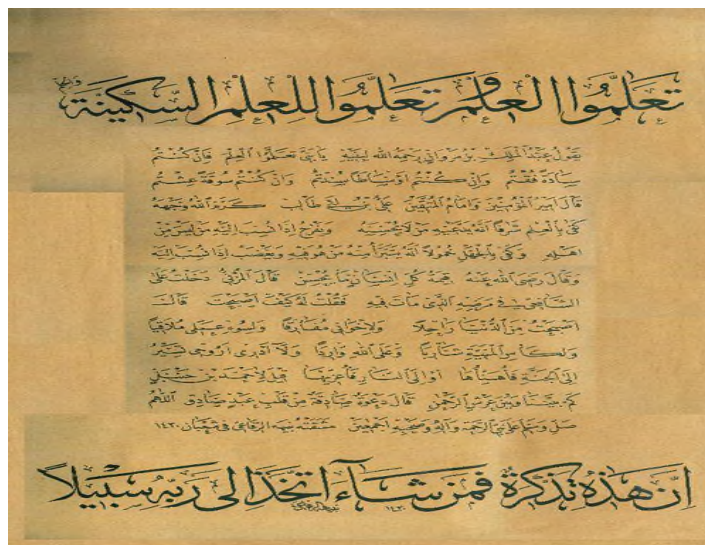 تعلموا العلم وتعلموا للعلم السكينة والحلم
يقول عبد الملك بن مروان رحمه الله لبنيه يا بني تعلموا العلم فإن كنتم
سادة فقتم وإن كنتم أوساطا سدتم وإن كنتم سوقة عشتم
قال أمير المؤمنين وإمام المتقين علي بن أبي طالب كرم الله وجهه
كفى بالعلم شرفا أنه يدعيه من لا يحسنه ويفرح إذا نسب إليه من ليس من
أهله وكفى بالجهل خمولا أنه يتبرأ منه من هو فيه ويغضب إذا نسب إليه
وقال رضي الله عنه قيمة كل إنسان ما يحسن قال المزني دخلت على
الشافعي في مرضه الذي مات فيه فقلت له كيف أصبحت قال
أصبحت من الدنيا راحلا ولإخواني مفارقا ولسوء عملي ملاقيا
ولكأس المنية شاربا وعلى الله واردا ولا أدري أروحي تصير
إلى الجنة فأهنيها أو إلى النار فأعزيها قيل لأحمد بن حنبل
كم بيننا وبين عرش الرحمن قال دعوة صادقة من قلب عبد صادق اللهم
صل وسلم على نبي الرحمة وآله وصحبه أجمعين في شعبان ١٤٣٠
إن هذه تذكرة فمن شاء اتخذ إلى ربه سبيلا
١٤٣٠